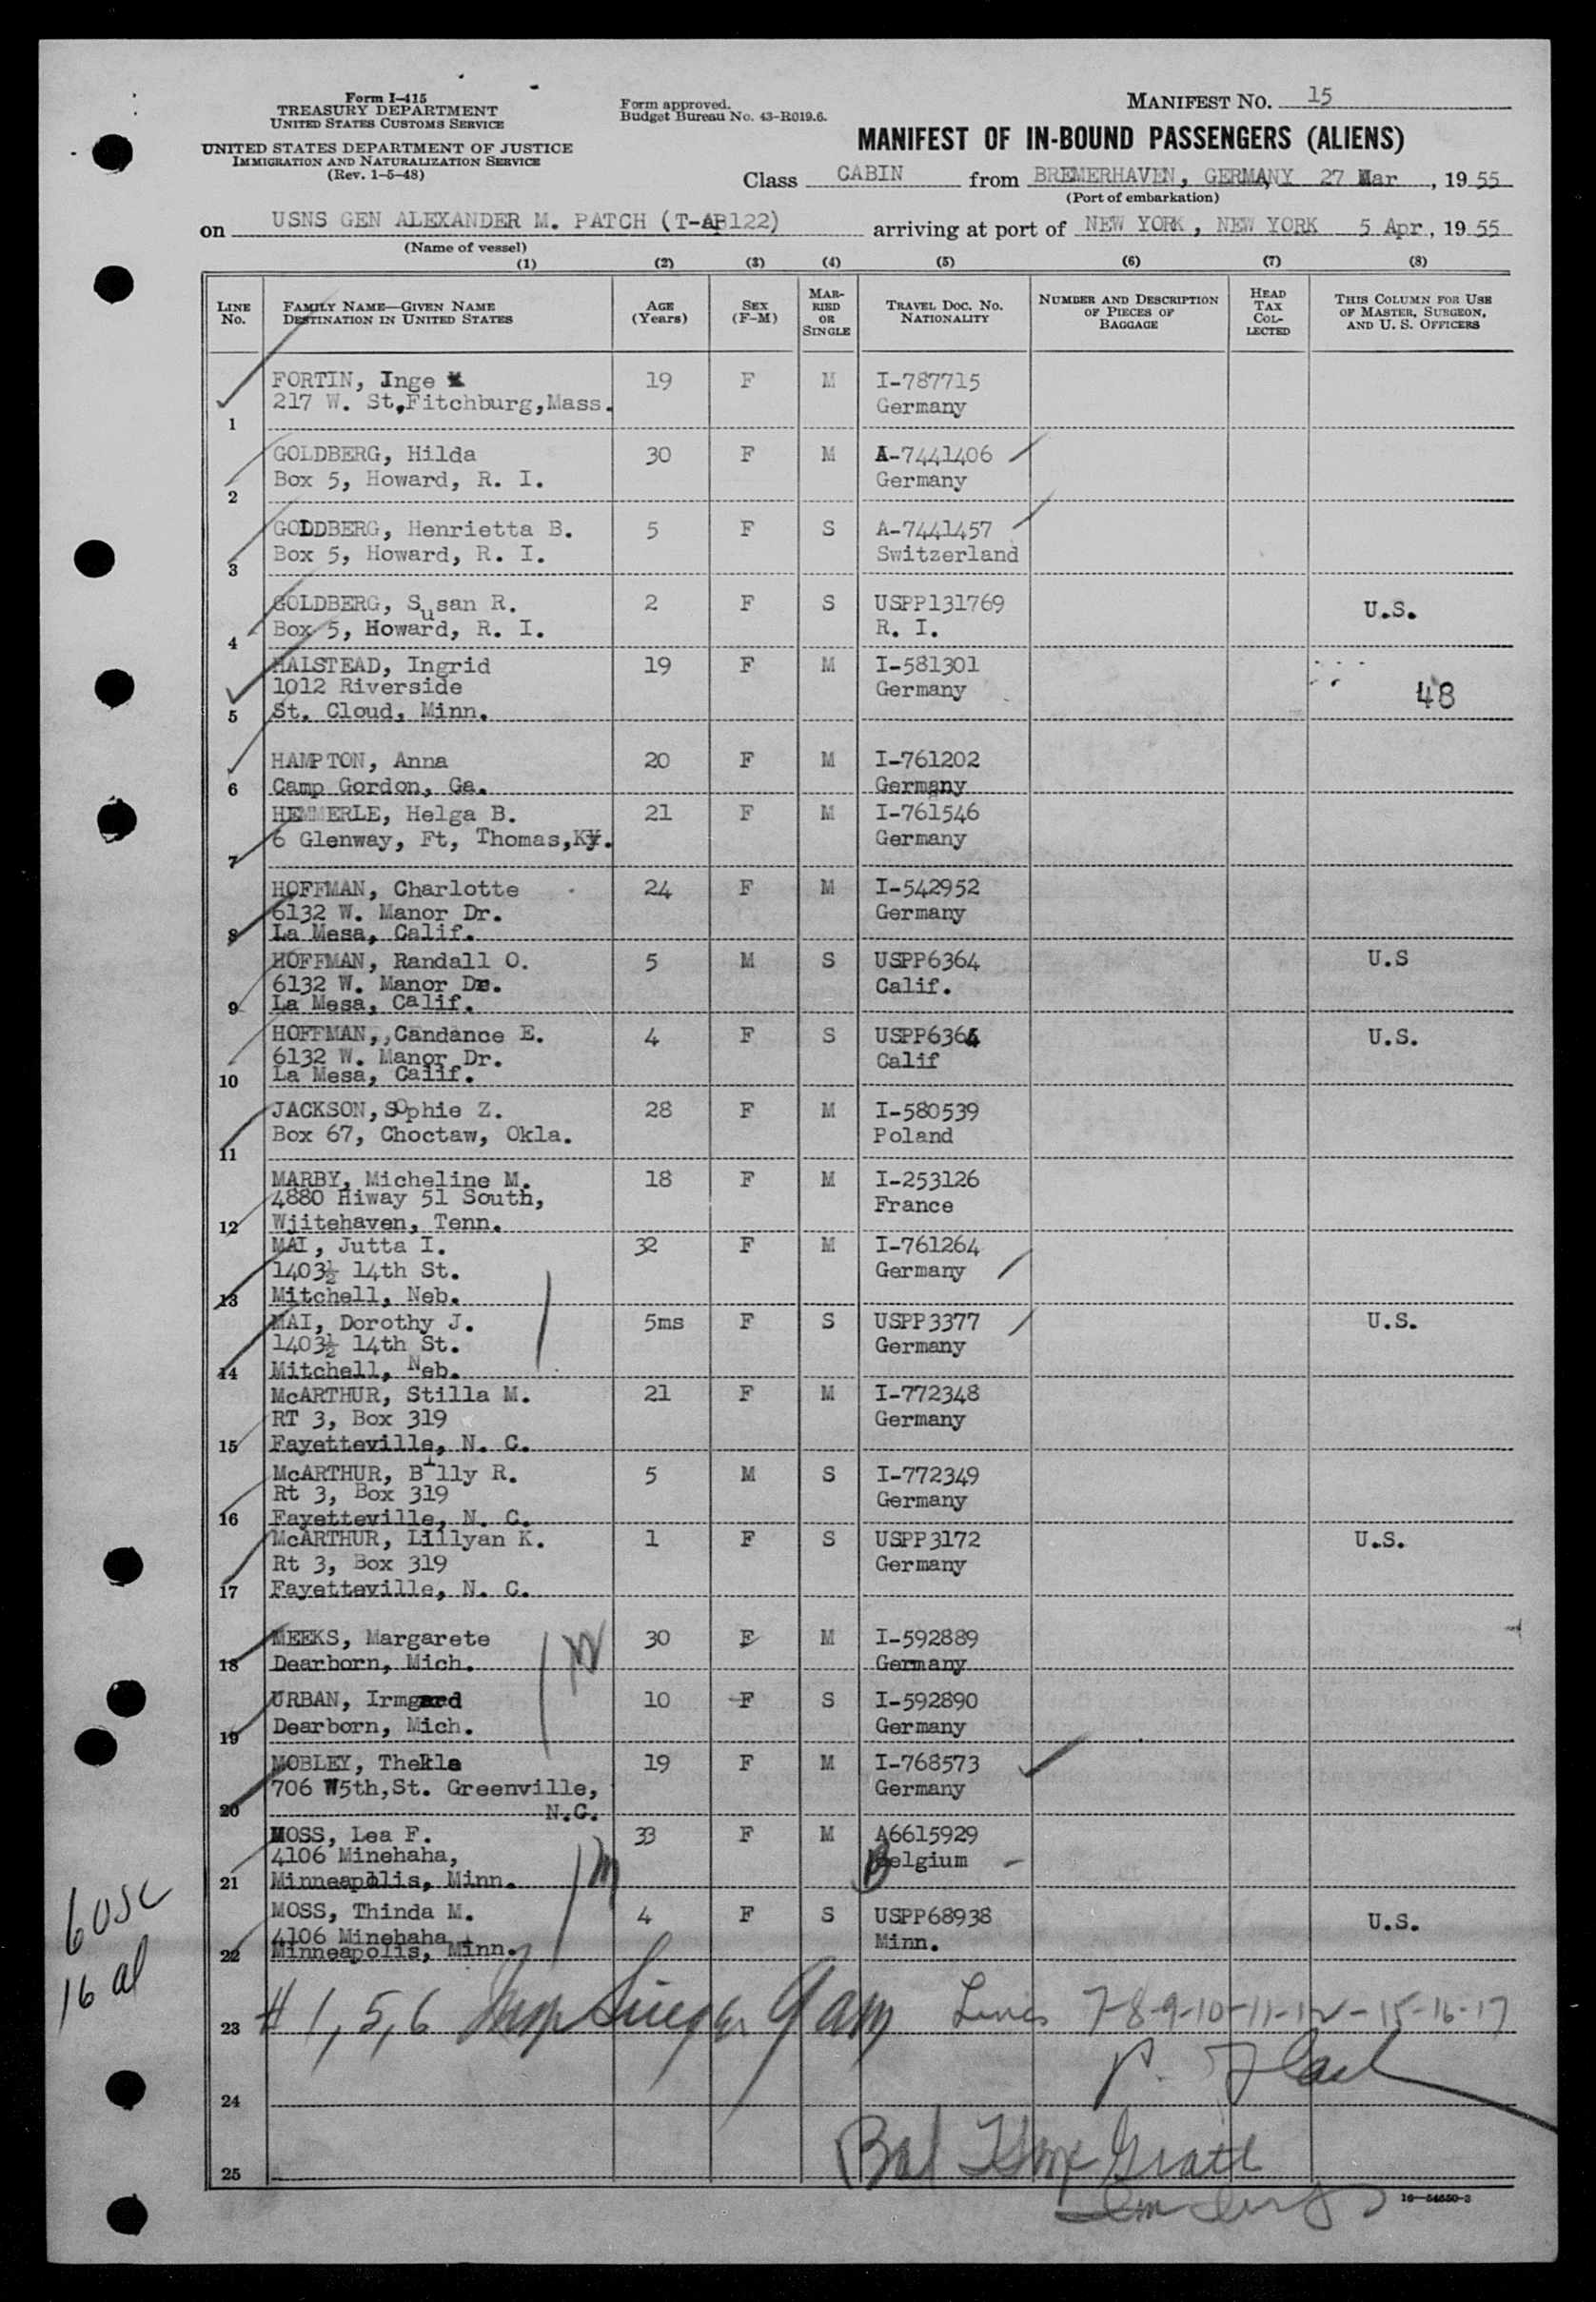 Form I-415
TREASURY DEPARTMENT
UNITED STATES CUSTOMS SERVICE
UNITED STATES DEPARTMENT OF JUSTICE
IMMIGRATION AND NATURALIZATION SERVICE
(Rev. 1-5-48)
Form approved.
Budget Bureau No. 43-R019.6.
MANIFEST NO. 15
MANIFEST OF IN-BOUND PASSENGERS (ALIENS)
Class CABIN from BREMERHAVEN, GERMANY 27 Mar, 1955
(Port of embarkation)
on USNS GEN ALEXANDER M. PATCH (T-AP122) arriving at port of NEW YORK, NEW YORK 5 Apr, 1955
(Name of vessel)
(1) (2) (3) (4) (5) (6) (7) (8)
LINE No. FAMILY NAME—GIVEN NAME DESTINATION IN UNITED STATES AGE (Years) SEX (F-M) MARRIED OR SINGLE TRAVEL DOC. NO. NATIONALITY NUMBER AND DESCRIPTION OF PIECES OF BAGGAGE HEAD TAX COLLECTED THIS COLUMN FOR USE OF MASTER, SURGEON, AND U. S. OFFICERS
FORTIN, Inge 19 F M I-787715
217 W. St,Fitchburg,Mass. Germany
1
GOLDBERG, Hilda 30 F M A-7441406
Box 5, Howard, R. I. Germany
2
GOLDBERG, Henrietta B. 5 F S A-7441457
Box 5, Howard, R. I. Switzerland
3
GOLDBERG, Susan R. 2 F S USPP131769 U.S.
Box 5, Howard, R. I. R. I.
4
HALSTEAD, Ingrid 19 F M I-581301
1012 Riverside Germany 48
5 St. Cloud, Minn.
HAMPTON, Anna 20 F M I-761202
6 Camp Gordon, Ga. Germany
HEMMERLE, Helga B. 21 F M I-761546
6 Glenway, Ft, Thomas,Ky. Germany
7
HOFFMAN, Charlotte 24 F M I-542952
6132 W. Manor Dr. Germany
8 La Mesa, Calif.
HOFFMAN, Randall O. 5 M S USPP6364 U.S
6132 W. Manor Dr. Calif.
9 La Mesa, Calif.
HOFFMAN,,Candance E. 4 F S USPP6364 U.S.
6132 W. Manor Dr. Calif
10 La Mesa, Calif.
JACKSON,Sophie Z. 28 F M I-580539
Box 67, Choctaw, Okla. Poland
11
MARBY, Micheline M. 18 F M I-253126
4880 Hiway 51 South, France
12 Wjitehaven, Tenn.
MAI, Jutta I. 32 F M I-761264
1403½ 14th St. Germany
13 Mitchell, Neb.
MAI, Dorothy J. 5ms F S USPP3377 U.S.
1403½ 14th St. Germany
14 Mitchell, Neb.
McARTHUR, Stilla M. 21 F M I-772348
RT 3, Box 319 Germany
15 Fayetteville, N. C.
McARTHUR, Billy R. 5 M S I-772349
Rt 3, Box 319 Germany
16 Fayetteville, N. C.
McARTHUR, Lillyan K. 1 F S USPP3172 U.S.
Rt 3, Box 319 Germany
17 Fayetteville, N. C.
MEEKS, Margarete 30 F M I-592889
18 Dearborn, Mich. Germany
URBAN, Irmgard 10 F S I-592890
Dearborn, Mich. Germany
19
MOBLEY, Thekla 19 F M I-768573
706 W5th,St. Greenville, Germany
20 N.C.
MOSS, Lea F. 33 F M A6615929
4106 Minehaha, Belgium
21 Minneapolis, Minn.
MOSS, Thinda M. 4 F S USPP68938 U.S.
4106 Minehaha Minn.
22 Minneapolis, Minn.
60SC
16 al
23 # 1, 5, 6 Lines 7-8-9-10-11-12-15-16-17
24
Bal
25
16—54650-3